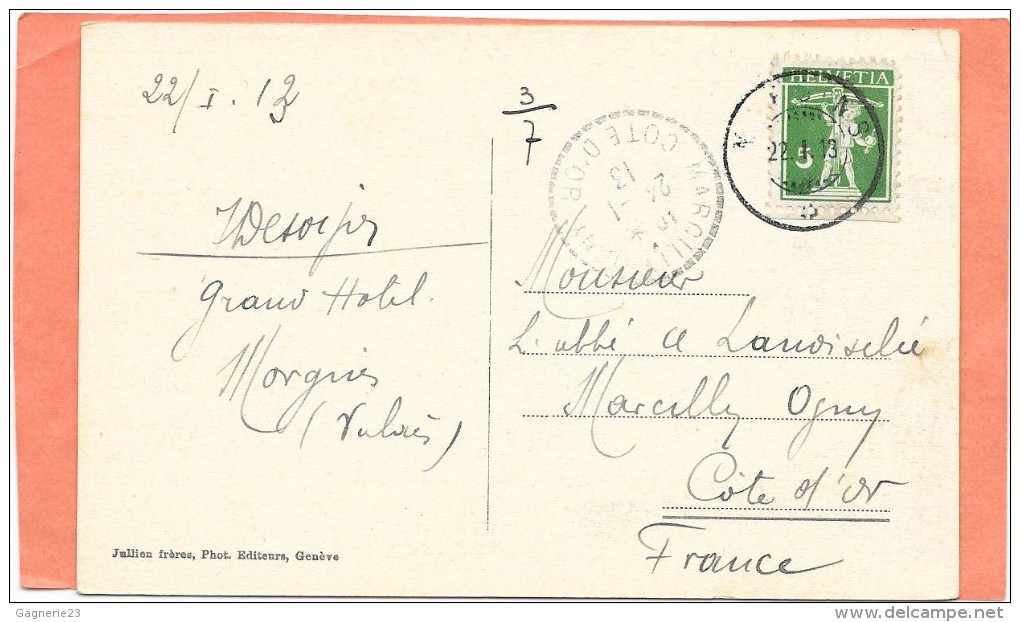 22/I.13
3/7
HELVETIA
5
22.I.13
MARCILLY
COTE D'OR
24
13
Grand Hotel.
Morgins
(Valais)
Monsieur
L'abbé
Marcilly Ogny
Côte d'or
France
Jullien frères, Phot. Editeurs, Genève
Gagnerie23
delcampe.net